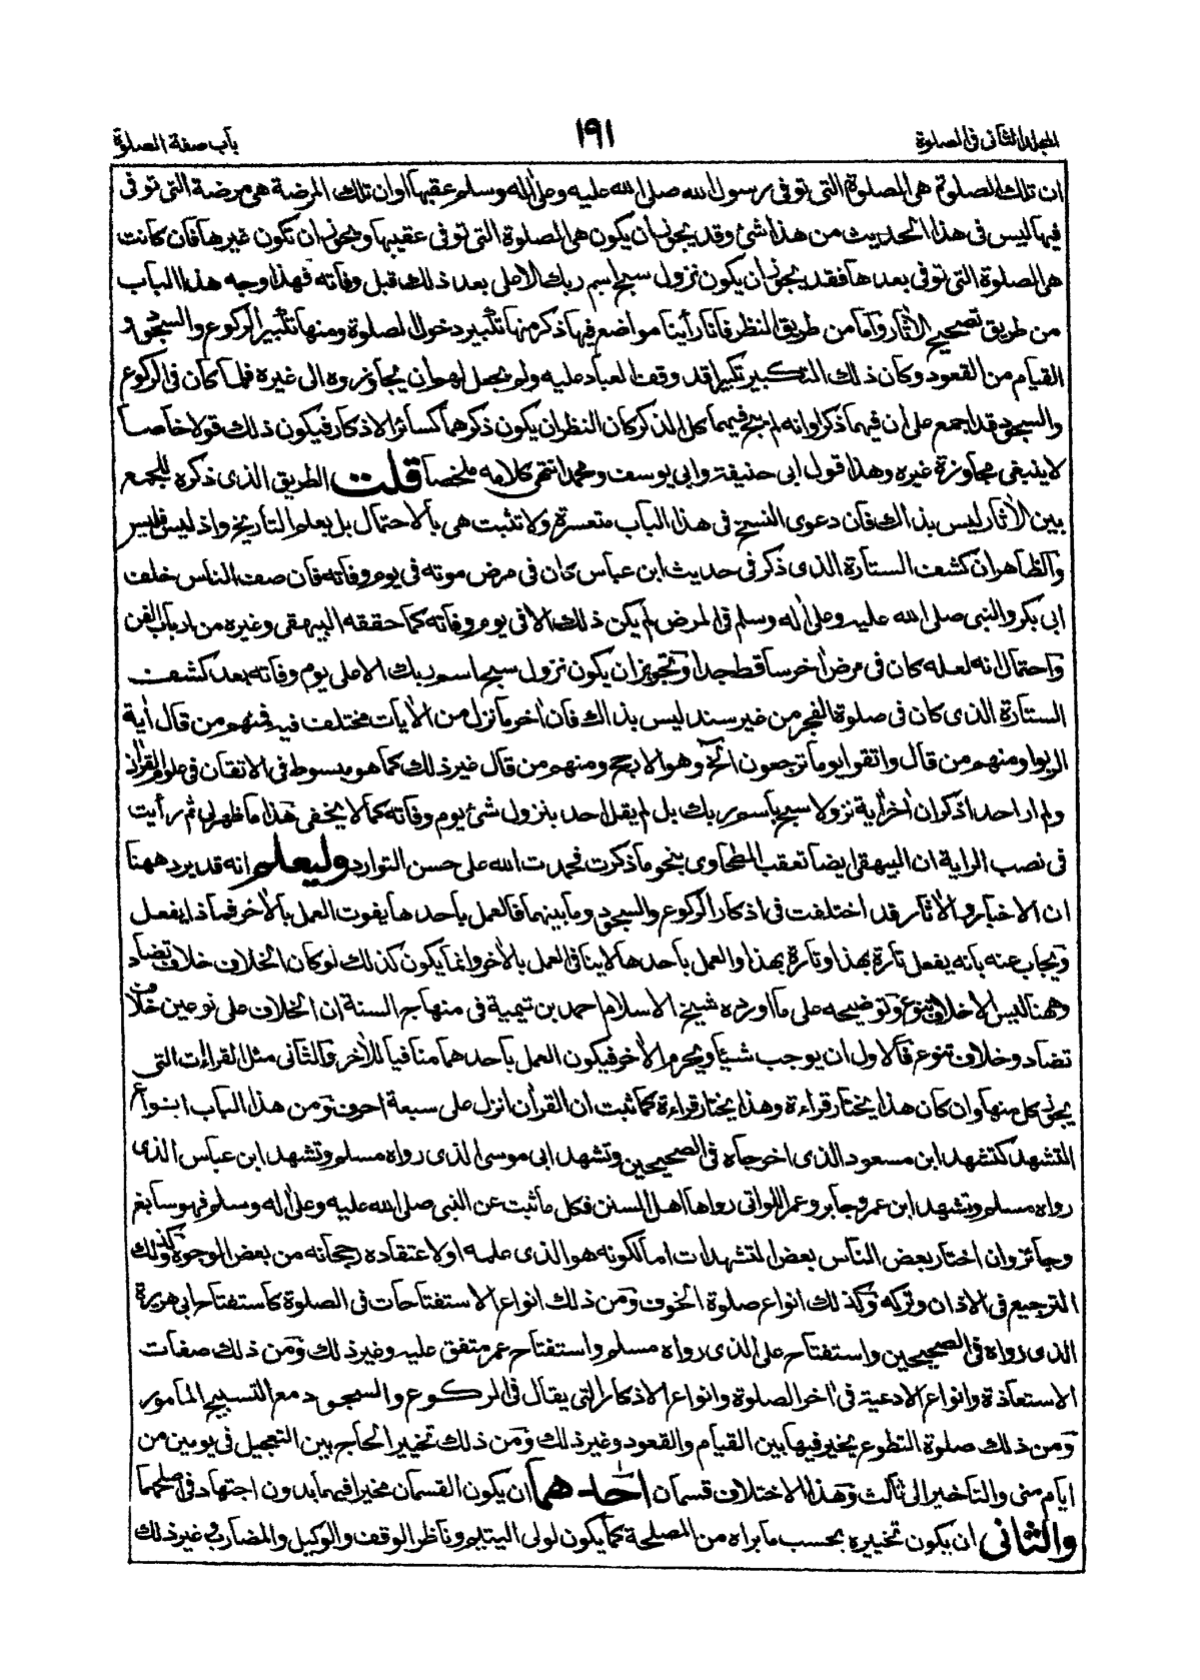 المجلد الثانى فى الصلوة
١٩١
باب صفة الصلوة
ان تلك الصلوة هى الصلوة التى توفى رسول الله صلى الله عليه وعلى اله وسلم عقبها وان تلك المرضة هى مرضة التى توفى
فيها ليس فى هذا الحديث من هذا شئ وقد يجوز ان يكون هى الصلوة التى توفى عقيبها ويجوز ان تكون غيرها فان كانت
هى الصلوة التى توفى بعدها فقد يجوز ان يكون نزول سبح اسم ربك الاعلى بعد ذلك قبل وفاته فهذا وجه هذا الباب
من طريق تصحيح الاثار واما من طريق النظر فانا رأينا مواضع فيها ذكر منها تكبير دخول الصلوة ومنها تكبير الركوع والسجود و
القيام من القعود وكان ذلك التكبير تكبيرا قد وقف العباد عليه ولم يجعل لهم ان يجاوزوه الى غيره فلما كان فى الركوع
والسجود قد اجمع على ان فيهما ذكرا وانه لم يبح فيهما كل الذكر كان النظر ان يكون ذكرهما كسائر الاذكار فيكون ذلك قولا خاصا
لا ينبغى مجاوزة غيره وهذا قول ابى حنيفة وابى يوسف ومحمد انتهى كلامه ملخصا قلت الطريق الذى ذكره للجمع
بين الاثار ليس بذاك فان دعوى النسخ فى هذا الباب متعسرة ولا تثبت هى بالاحتمال بل بعلم التأريخ واذ ليس فليس
والظاهر ان كشف الستارة الذى ذكر فى حديث ابن عباس كان فى مرض موته فى يوم وفاته فان صف الناس خلف
ابى بكر والنبى صلى الله عليه وعلى اله وسلم فى المرض لم يكن ذلك الا فى يوم وفاته كما حققه البيهقى وغيره من ارباب الفن
واحتمال انه لعله كان فى مرض اخر ساقط جدا وتجويز ان يكون نزول سبح اسم ربك الاعلى يوم وفاته بعد كشف
الستارة الذى كان فى صلوة الفجر من غير سند ليس بذاك فان اخر ما نزل من الايات مختلف فيه فمنهم من قال اية
الربوا ومنهم من قال واتقوا يوما ترجعون الخ وهو الارجح ومنهم من قال غير ذلك كما هو مبسوط فى الاتقان فى علوم القران
ولم ار احدا ذكر ان اخر اية نزولا سبح باسم ربك بل لم يقل احد بنزول شئ يوم وفاته كما لا يخفى هذا ما ظهر لى ثم رأيت
فى نصب الراية ان البيهقى ايضا تعقب الطحاوى بنحو ما ذكرت فحمدت الله على حسن التوارد وليعلم انه قد يرد ههنا
ان الاخبار والاثار قد اختلفت فى اذكار الركوع والسجود وما بينهما فالعمل باحدها يفوت العمل بالاخر فماذا يفعل
ويجاب عنه بانه يفعل تارة بهذا وتارة بهذا والعمل باحدها لا ينافى العمل بالاخر وانما يكون كذلك لو كان الخلاف خلاف تضاد
وهنا ليس الا خلاف تنوع وتوضيحه على ما اورده شيخ الاسلام احمد بن تيمية فى منهاج السنة ان الخلاف على نوعين خلاف
تضاد وخلاف تنوع فالاول ان يوجب شيئا ويحرم الاخر فيكون العمل باحدهما منافيا للاخر والثانى مثل القراءات التى
يجوز كل منها وان كان هذا يختار قراءة وهذا يختار قراءة كما ثبت ان القران انزل على سبعة احرف ومن هذا الباب انواع
التشهد كتشهد ابن مسعود الذى اخرجاه فى الصحيحين وتشهد ابى موسى الذى رواه مسلم وتشهد ابن عباس الذى
رواه مسلم وتشهد ابن عمر وجابر وعمر اللواتى رواها اهل السنن فكل ما ثبت عن النبى صلى الله عليه وعلى اله وسلم فهو سايغ
وجائز وان اختار بعض الناس بعض التشهدات اما لكونه هو الذى علمه او لاعتقاده رجحانه من بعض الوجوه وكذلك
الترجيع فى الاذان وتركه وكذلك انواع صلوة الخوف ومن ذلك انواع الاستفتاحات فى الصلوة كاستفتاح ابى هريرة
الذى رواه فى الصحيحين واستفتاح على الذى رواه مسلم واستفتاح عمر متفق عليه وغير ذلك ومن ذلك صفات
الاستعاذة وانواع الادعية فى اخر الصلوة وانواع الاذكار التى يقال فى الركوع والسجود مع التسبيح المأمور
ومن ذلك صلوة التطوع يخير فيها بين القيام والقعود وغير ذلك ومن ذلك تخيير الحاج بين التعجيل فى يومين من
ايام منى والتأخير الى ثالث وهذا الاختلاف قسمان احدهما ان يكون القسمان مخيرا فيهما بدون اجتهاد فى اصلحهما
والثانى ان يكون تخييره بحسب ما يراه من المصلحة كما يكون لولى اليتيم وناظر الوقف والوكيل والمضارب غير ذلك